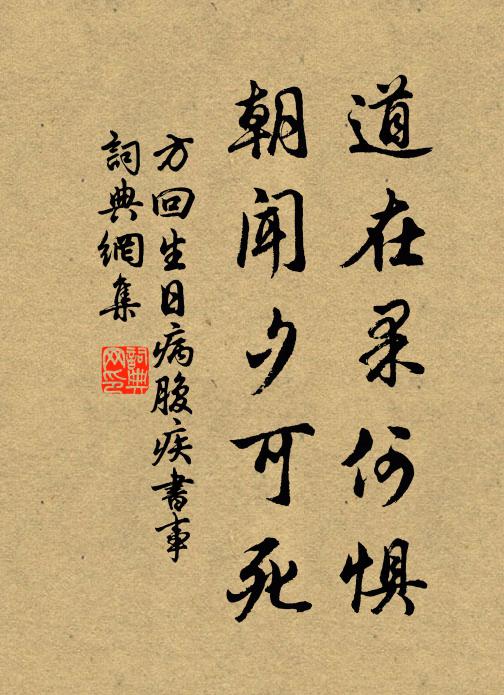 道在果何懼
朝聞夕可死
方回生日病腹疾書事
詞典網集
詞典网印